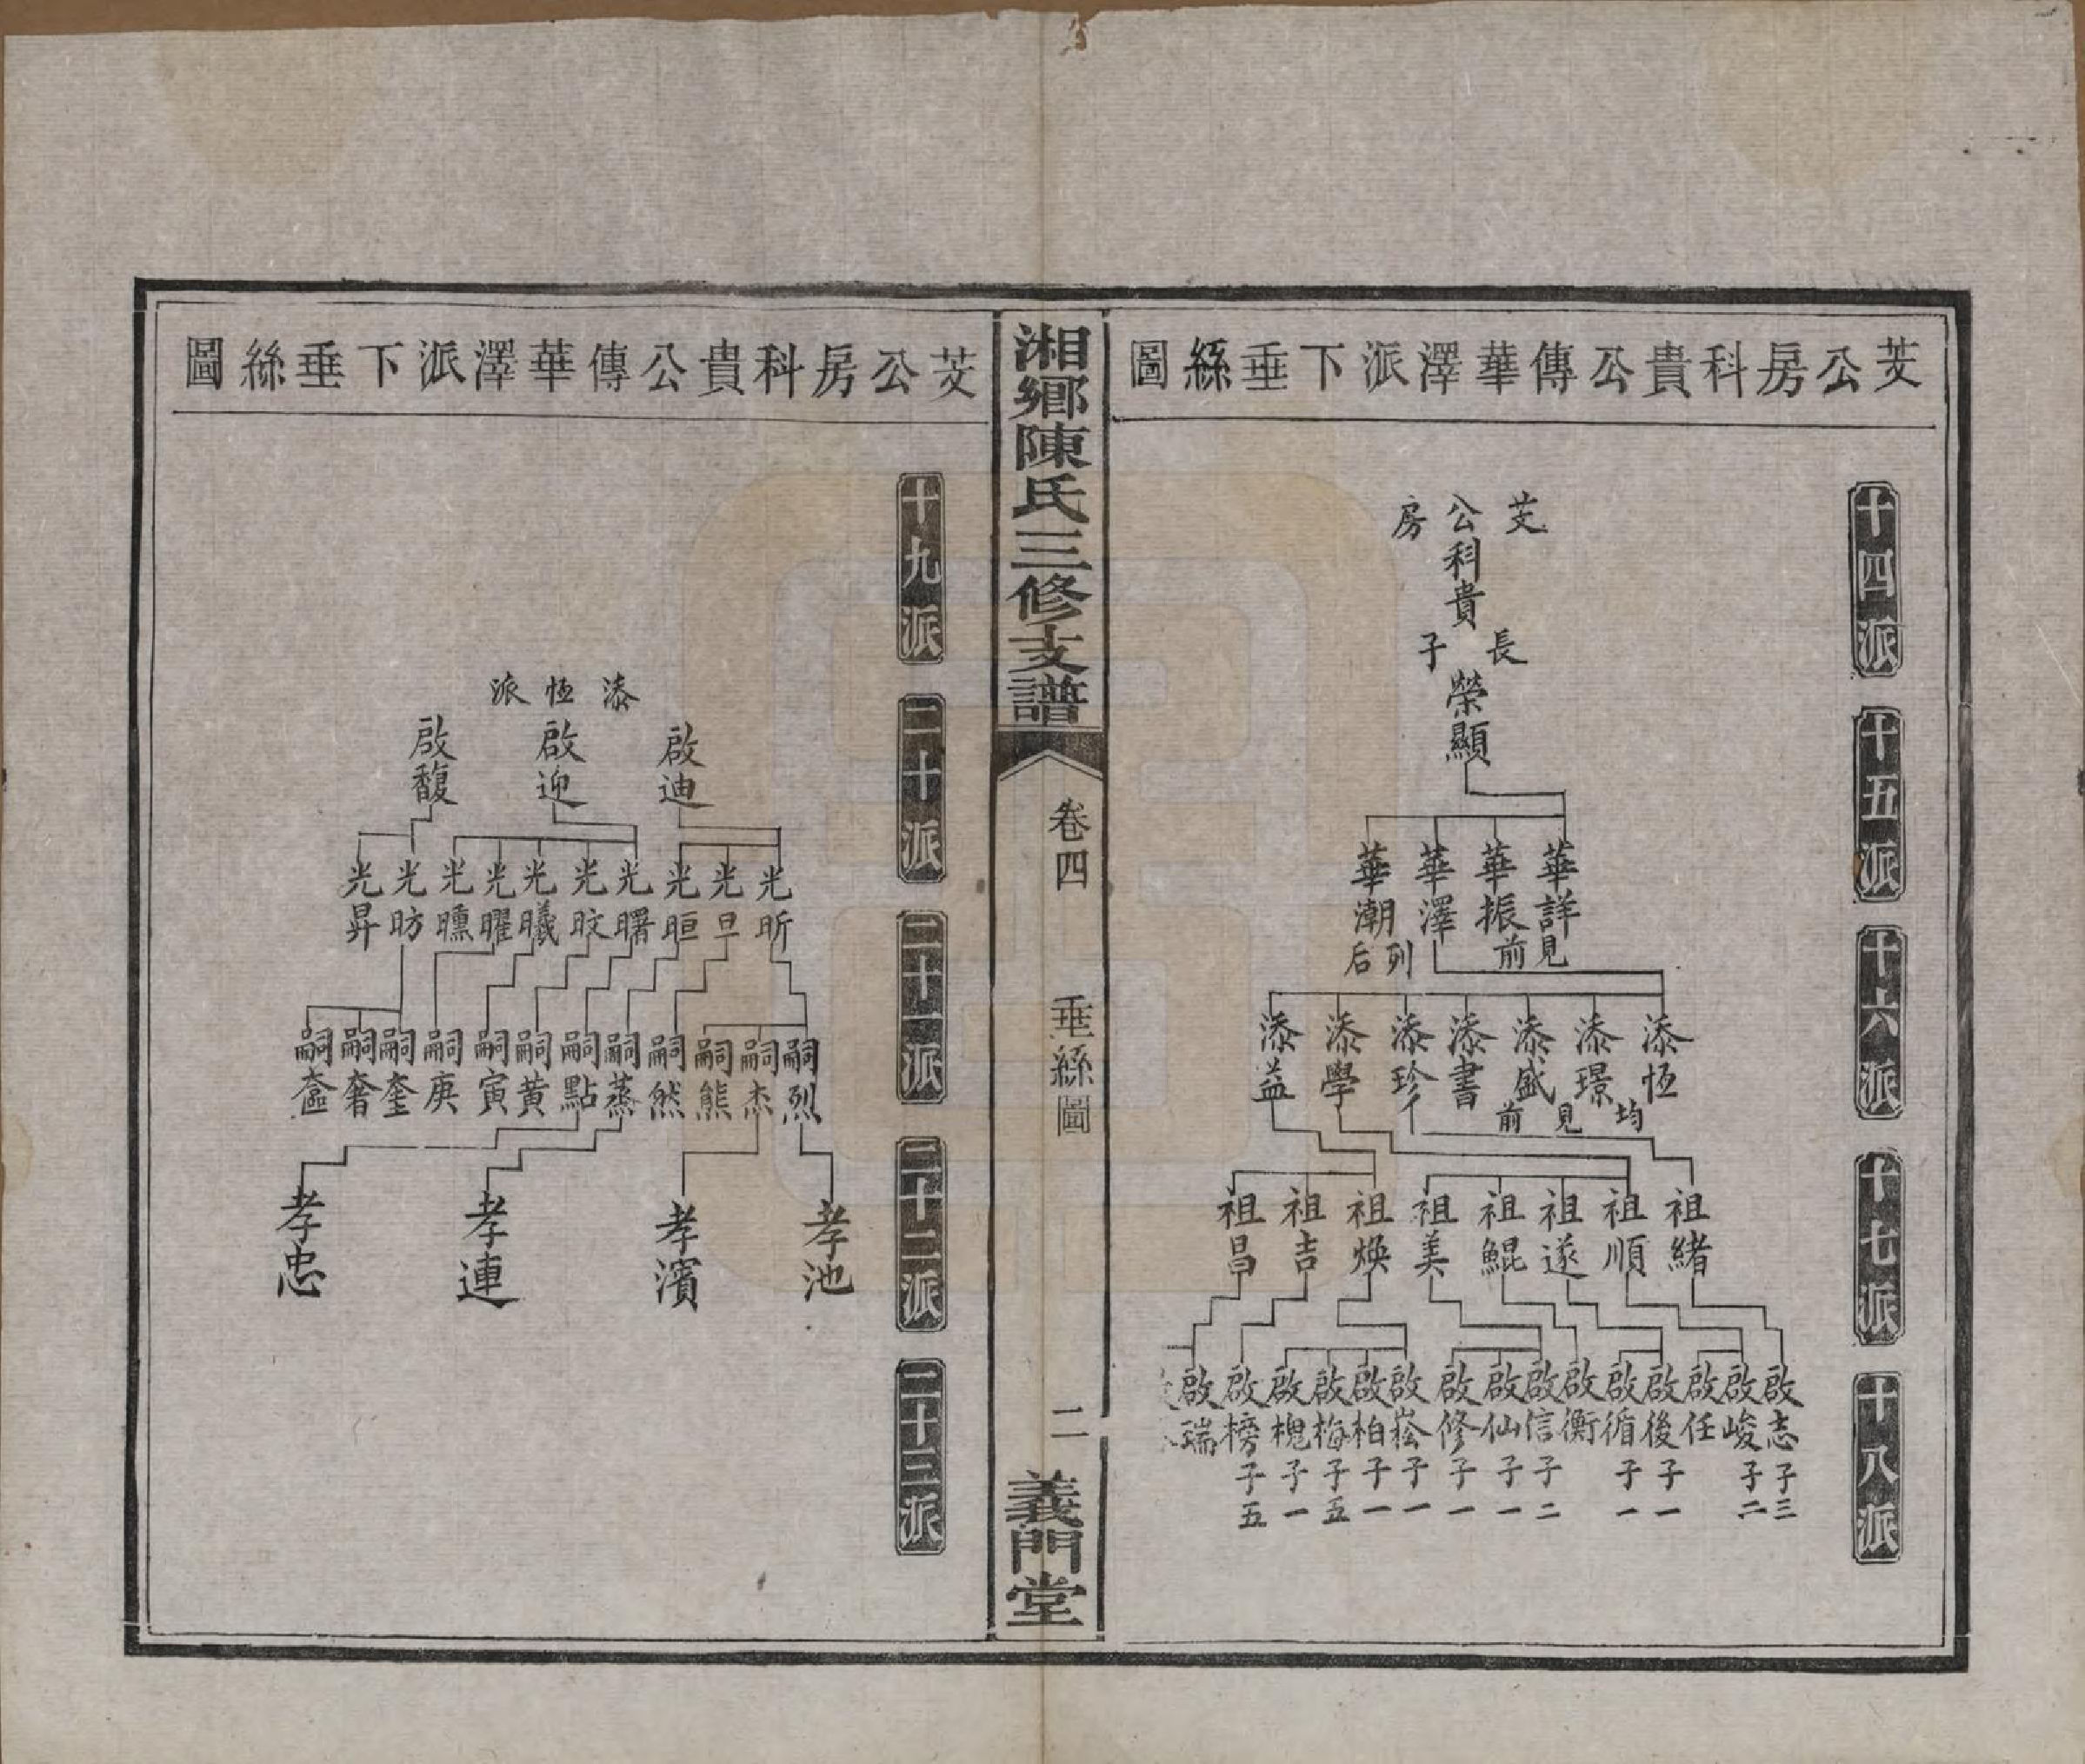 芠公房科貴公傳華澤派下垂絲圖
十四派
十五派
十六派
十七派
十八派
芠公房
科貴
長子
榮顯
華詳 華振 華澤 華潮
見前
列后
添恆 添璟 添盛 添書 添珍 添學 添益
均見前
祖緒 祖順 祖遂 祖鯤 祖美 祖煥 祖吉 祖昌
啟志 子三
啟峻 子二
啟任
啟後 子一
啟循 子一
啟衡
啟信 子二
啟仙 子一
啟修 子一
啟崧 子一
啟柏 子一
啟梅 子五
啟槐 子一
啟榜 子五
啟瑞
湘鄉陳氏三修支譜
卷四
垂絲圖
二
義門堂
芠公房科貴公傳華澤派下垂絲圖
十九派
二十派
二十一派
二十二派
二十三派
添恆派
啟迪 啟迎 啟馥
光昕 光旦 光晅 光曙 光旼 光曦 光曜 光曛 光昉 光昇
嗣烈 嗣杰 嗣熊 嗣然 嗣蒸 嗣點 嗣黃 嗣寅 嗣庚 嗣奎 嗣奢 嗣奩
孝池 孝濱 孝連 孝忠